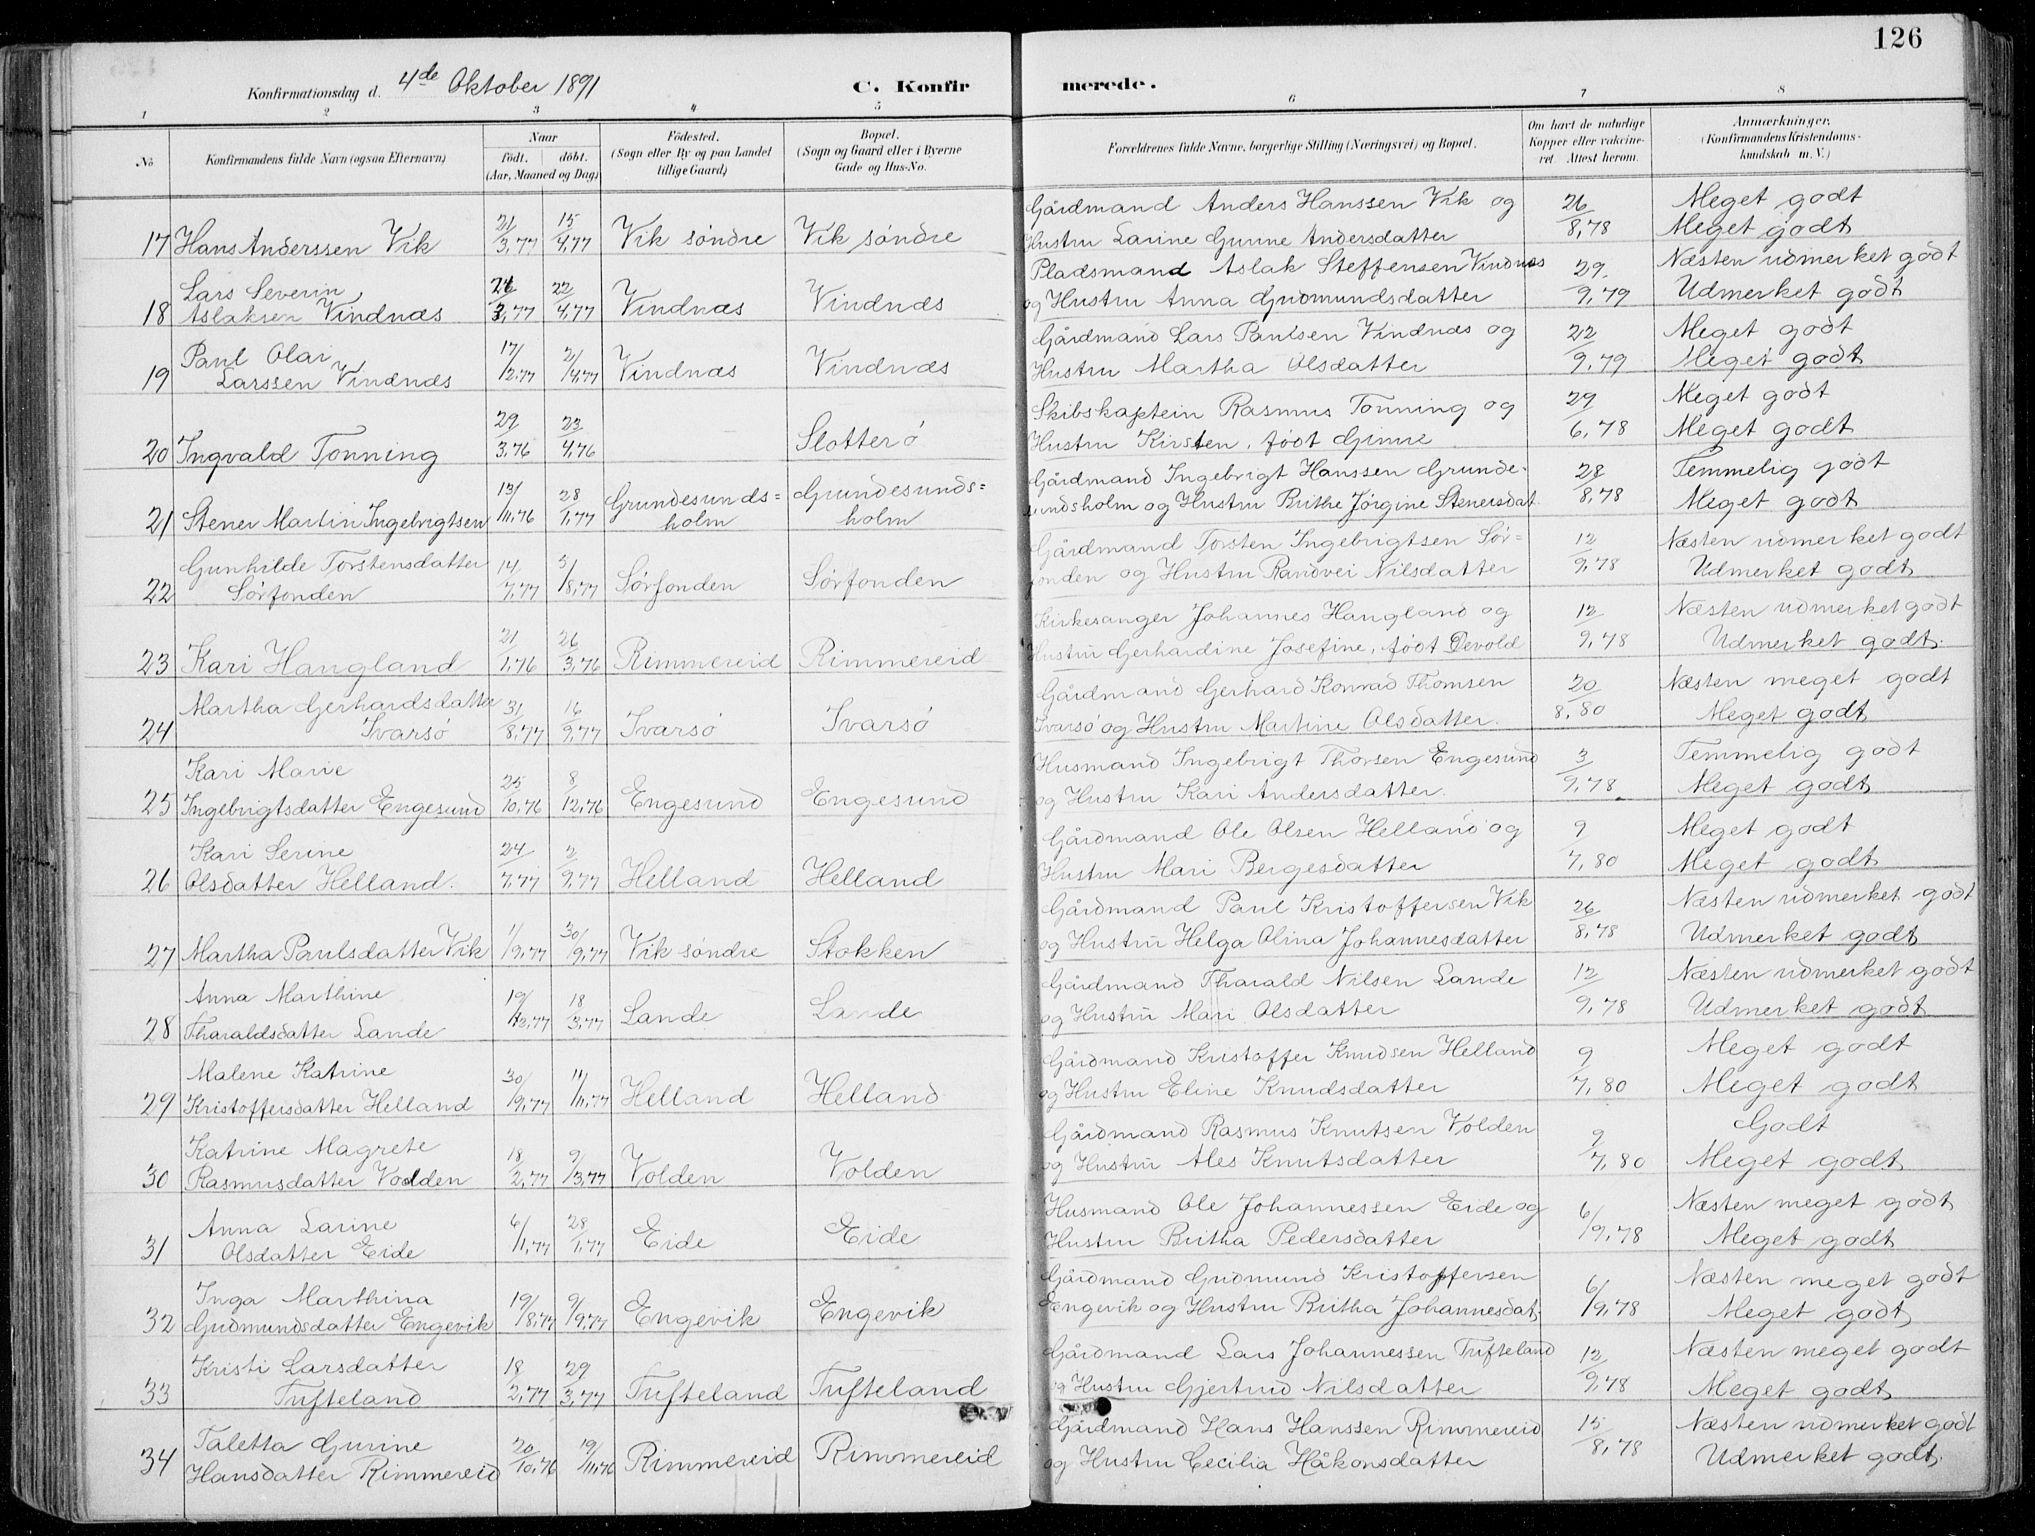 126
Konfirmationsdag d. 4de Oktober 1891
C. Konfirmerede.
1 2 3 4 5 6 7 8
No
Konfirmandens fulde Navn (ogsaa Efternavn)
Naar
født. døbt.
(Aar, Maaned og Dag)
Fødested.
(Sogn eller By og paa Landet
tillige Gaard)
Bopæl.
(Sogn og Gaard eller i Byerne
Gade og Hus-No.
Forældrenes fulde Navne, borgerlige Stilling (Næringsvei) og Bopæl.
Om havt de naturlige
Kopper eller vakcine-
ret. Attest herom.
Anmærkninger.
(Konfirmandens Kristendoms-
kundskab m. V.)
17 Hans Anderssen Vik 21/3,77 15/4,77 Vik søndre Vik søndre
Gårdmand Anders Hanssen Vik og
Hustru Larine Gurine Andersdatter
26/8,78
Meget godt
Meget godt
18 Lars Severin
Aslaksen Vindnæs 3,77 22/4,77 Vindnæs Vindnæs
Pladsmand Aslak Steffensen Vindnæs
og Hustru Anna Gudmundsdatter
29/9,79
Næsten udmerket godt
Udmerket godt
19 Paul Olai
Larssen Vindnæs 17/2,77 2/4,77 Vindnæs Vindnæs
Gårdmand Lars Paulsen Vindnæs og
Hustru Martha Olsdatter
22/9,79
Meget godt
Meget godt
20 Ingvald Tonning 29/3,76 23/4,76 Slotterø
Skibskaptein Rasmus Tonning og
Hustru Kirsten, født Gimre
29/6,78
Meget godt
Meget godt
21 Stener Martin Ingebrigtsen 13/11,76 28/1,77 Grundesunds=
holm Grundesunds=
holm
Gårdmand Ingebrigt Hanssen Grunde-
sundsholm og Hustru Brithe Jørgine Stenersdat.
28/8,78
Temmelig godt
Meget godt
22 Gunhilde Torstensdatter
Sørfonden 14/7,77 5/8,77 Sørfonden Sørfonden
Gårdmand Torsten Ingebrigtsen Sør=
fonden og Hustru Randvei Nilsdatter
12/9,78
Næsten udmerket godt
Udmerket godt
23 Kari Haugland 21/1,76 26/3,76 Rimmereid Rimmereid
Kirkesanger Johannes Haugland og
Hustru Gerhardine Josefine, født Devold
12/9,78
Næsten udmerket godt
Udmerket godt.
24 Martha Gerhardsdatter
Ivarsø 31/8,77 16/9,77 Ivarsø Ivarsø
Gårdmand Gerhard Konrad Thomsen
Ivarsø og Hustru Martine Olsdatter.
20/8,80
Næsten meget godt
Meget godt
25 Kari Marie
Ingebrigtsdatter Engesund 25/10,76 8/12,76 Engesund Engesund
Husmand Ingebrigt Thorsen Engesund
og Hustru Kari Andersdatter.
3/9,78.
Temmelig godt
Meget godt
26 Kari Serine
Olsdatter Helland. 24/7,77 2/9,77 Helland Helland
Gårdmand Ole Olsen Helland og
Hustru Mari Bergesdatter
9/7,80
Meget godt
Meget godt
27 Martha Paulsdatter Vik 1/9,77 30/9,77 Vik søndre Stokken
Gårdmand Paul Kristoffersen Vik
og Hustru Helga Olina Johannesdatter
26/8,78
Næsten udmerket godt
Udmerket godt
28 Anna Marthine
Tharaldsdatter Lande 19/ 18/3,77 Lande Lande
Gårdmand Tharald Nilsen Lande
og Hustru Mari Olsdatter
12/9,78
Næsten udmerket godt
Udmerket godt
29 Malene Katrine
Kristoffersdatter Helland 30/9,77 11/11,77 Helland Helland
Gårdmand Kristoffer Knudsen Helland
og Hustru Eline Knudsdatter
9/7,80
Meget godt
Meget godt
30 Katrine Magrete
Rasmusdatter Volden 18/2,77 9/3,77 Volden Volden
Gårdmand Rasmus Knutsen Volden
og Hustru Ales Knutsdatter
9/7,80
Godt
Meget godt
31 Anna Larine
Olsdatter Eide 6/1,77 28/1,77 Eide Eide
Husmand Ole Johannessen Eide og
Hustru Britha Pedersdatter
6/9,78
Næsten meget godt
Meget godt
32 Inga Marthina
Gudmundsdatter Engevik 19/8,77 9/9,77 Engevik Engevik
Gårdmand Gudmund Kristoffersen
Engevik og Hustru Britha Johannesdat.
6/9,78
Næsten meget godt
Meget godt
33 Kristi Larsdatter
Tufteland 18/2,77 29/3,77 Tufteland Tufteland
Gårdmand Lars Johannessen Tufteland
og Hustru Gjertrud Nilsdatter
12/9,78
Næsten meget godt
Meget godt
34 Taletta Gurine
Hansdatter Rimmereid 20/10,76 19/11,76 Rimmereid Rimmereid
Gårdmand Hans Hanssen Rimmereid
og Hustru Cecilia Håkonsdatter
15/8,78
Næsten udmerket godt
Udmerket godt.